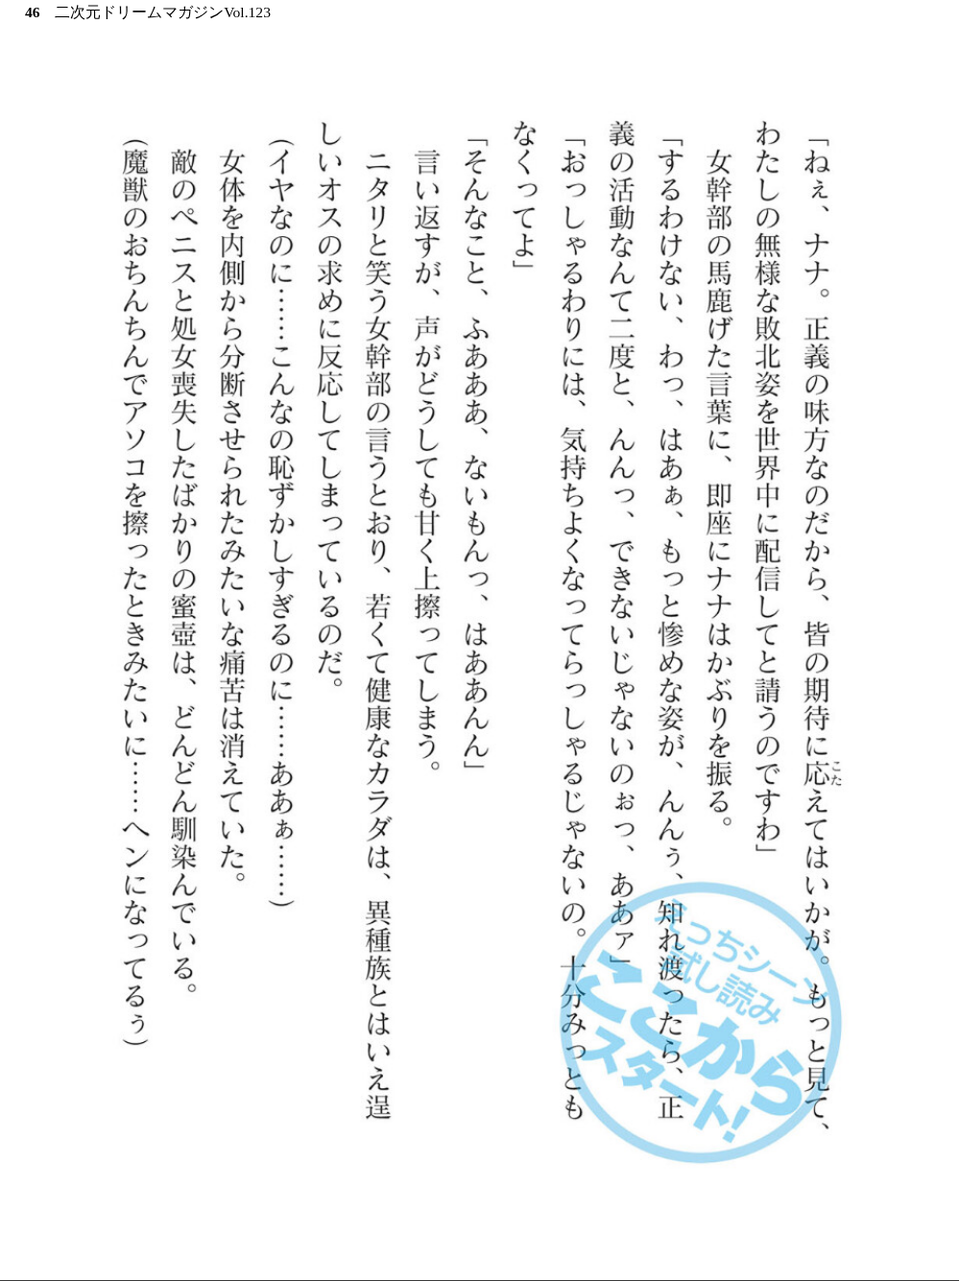 46 二次元ドリームマガジンVol.123
「ねぇ、ナナ。正義の味方なのだから、皆の期待に応えてはいかが。もっと見て、
こた
わたしの無様な敗北姿を世界中に配信してと請うのですわ」
女幹部の馬鹿げた言葉に、即座にナナはかぶりを振る。
「するわけない、わっ、はあぁ、もっと惨めな姿が、んんぅ、知れ渡ったら、正
義の活動なんて二度と、んんっ、できないじゃないのぉっ、ああァ」
「おっしゃるわりには、気持ちよくなってらっしゃるじゃないの。十分みっとも
なくってよ」
「そんなこと、ふあああ、ないもんっ、はああんん」
言い返すが、声がどうしても甘く上擦ってしまう。
ニタリと笑う女幹部の言うとおり、若くて健康なカラダは、異種族とはいえ逞
しいオスの求めに反応してしまっているのだ。
(イヤなのに……こんなの恥ずかしすぎるのに……ああぁ……)
女体を内側から分断させられたみたいな痛苦は消えていた。
敵のペニスと処女喪失したばかりの蜜壺は、どんどん馴染んでいる。
(魔獣のおちんちんでアソコを擦ったときみたいに……ヘンになってるぅ)
えっちシーン
試し読み
ここから
スタート!